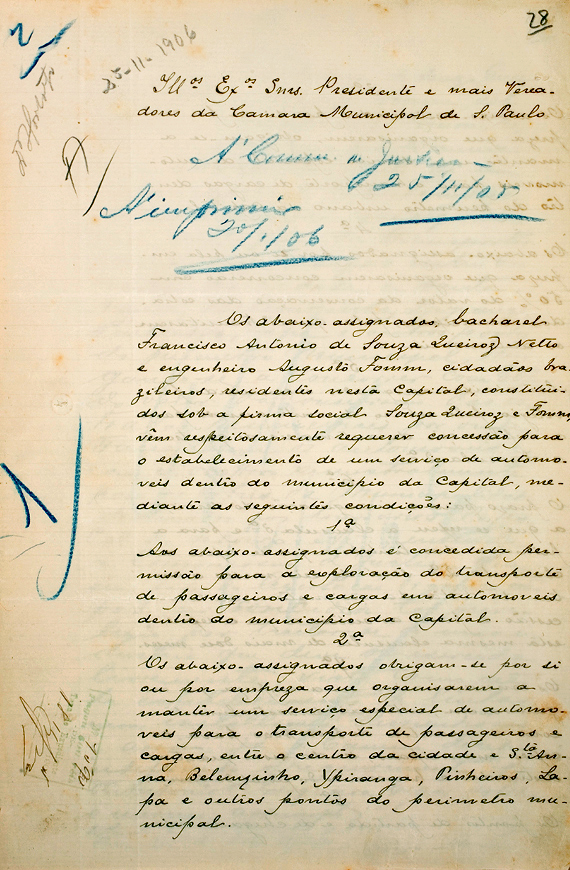 28
25-11-1906
Illos Exos Snrs. Presidente e mais Verea-
dores da Camara Municipal de S. Paulo
A' Comm. de Justiça
25/11/05
A' imprimir
20/1/06
Os abaixo-assignados, bacharel
Francisco Antonio de Souza Queiroz Netto
e engenheiro Augusto Fomm, cidadãos bra-
zileiros, residentes nesta Capital, constitui-
dos sob a firma social Souza Queiroz e Fomm,
vêm respeitosamente requerer concessão para
o estabelecimento de um serviço de automo-
veis dentro do municipio da Capital, me-
diante as seguintes condições:
1ª
Aos abaixo-assignados é concedida per-
missão para a exploração do transporte
de passageiros e cargas em automoveis
dentro do municipio da Capital.
2ª
Os abaixo-assignados obrigam-se por si
ou por empreza que organisarem a
manter um serviço especial de automo-
veis para o transporte de passageiros e
cargas, entre o centro da cidade e Sta An-
na, Belemzinho, Ypiranga, Pinheiros, La-
pa e outros pontos do perimetro mu-
nicipal.